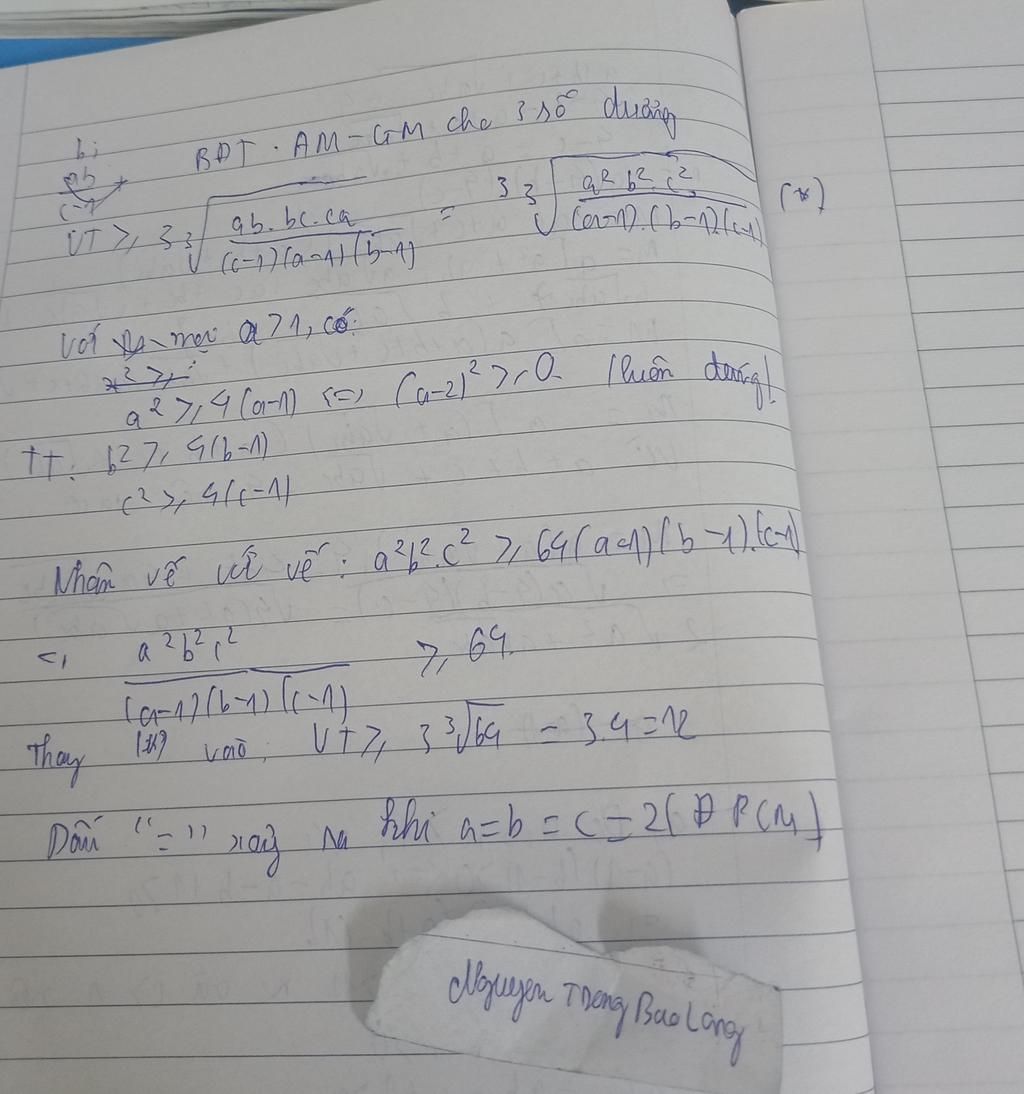 BĐT. AM-GM cho 3 số dương
bi
ab
c-1
VT ≥ 3∛(ab.bc.ca / (c-1)(a-1)(b-1)) = 3∛(a²b².c² / (a-1).(b-1).(c-1)) (*)
Với mọi a>1, có:
x² ≥
a² ≥ 4(a-1) <=> (a-2)² ≥ 0 (luôn đúng)
TT: b² ≥ 4(b-1)
c² ≥ 4(c-1)
Nhân vế với vế: a²b².c² ≥ 64(a-1)(b-1).(c-1)
a²b²c² / (a-1)(b-1)(c-1) ≥ 64.
Thay (*) vào: VT ≥ 3∛64 = 3.4=12
Dấu "=" xảy ra khi a=b=c=2 (ĐPCM)
Nguyen Trong Bao Long